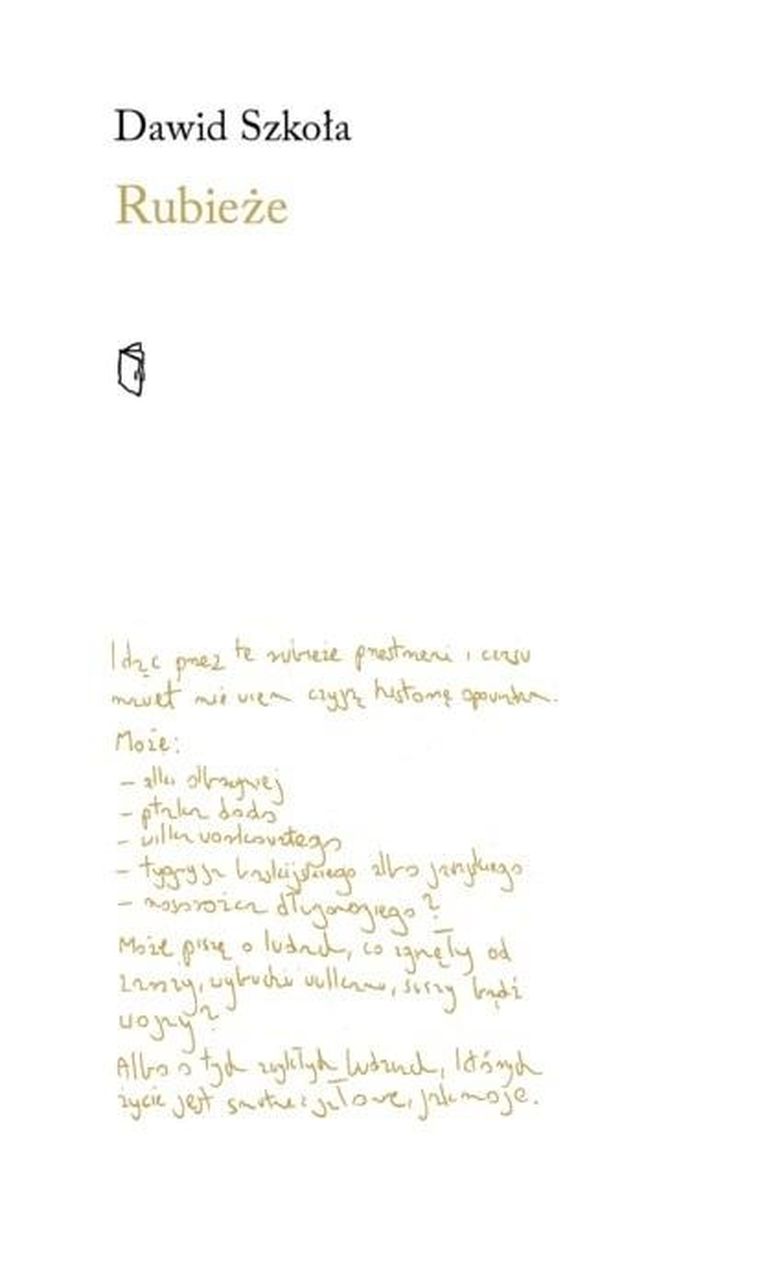 Dawid Szkoła
Rubieże
Idąc przez te rubieże przestrzeni i czasu
nawet nie wiem czyją historię opowiadam.
Może:
- alki olbrzymiej
- ptaka dodo
- wilka workowatego
- tygrysa kaspijskiego albo jawajskiego
- nosorożca długonogiego?
Może piszę o ludach, co zginęły od
zarazy, wybuchu wulkanu, suszy bądź
wojny?
Albo o tych zwykłych ludziach, których
życie jest smutne i jałowe, jak moje.